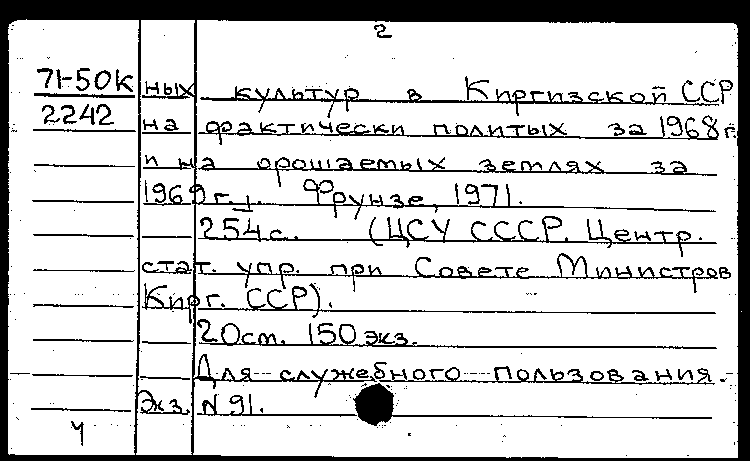 2
71-50К ных культур в Киргизской ССР
2242 на фактически политых за 1968 г.
и на орошаемых землях за
1969 г. Фрунзе, 1971.
254 с. (ЦСУ СССР. Центр.
стат. упр. при Совете Министров
Кирг. ССР).
20 ст. 150 экз.
Для служебного пользования.
Экз. N 91.